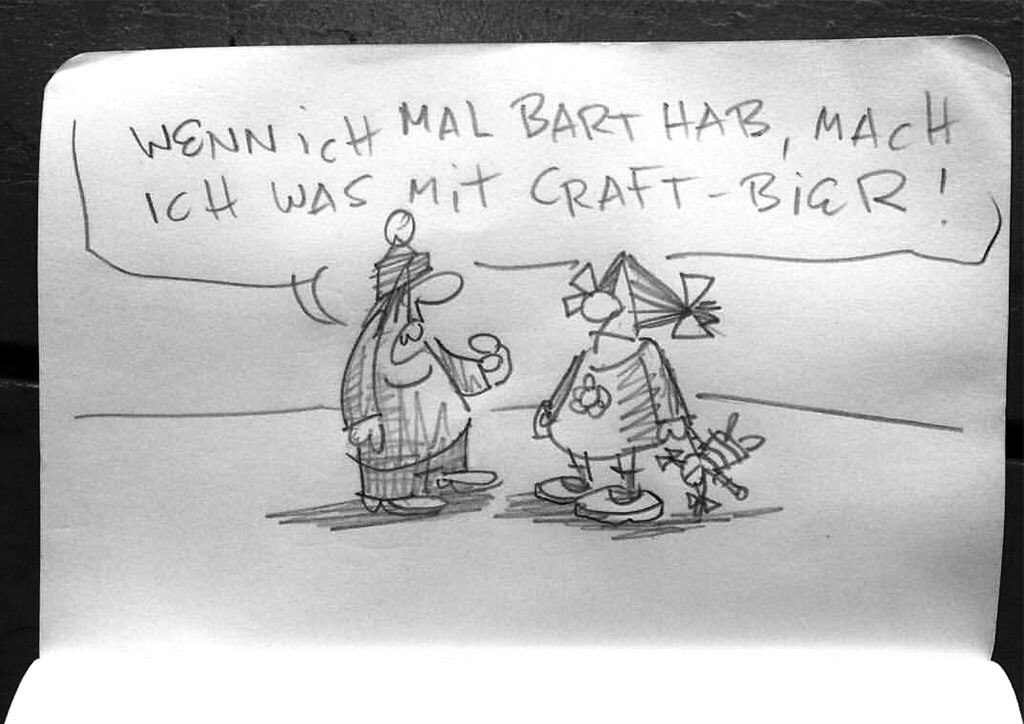 WENN ICH MAL BART HAB, MACH
ICH WAS MIT CRAFT-BIER!